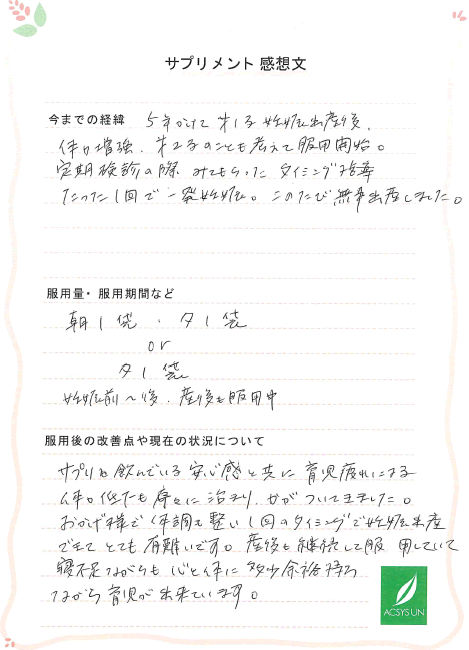 サプリメント 感想文
今までの経緯 5年かけて 第1子 妊娠出産後、
体力増強、第2子のことも考えて服用開始。
定期検診の際 みてもらった タイミング指導
たった1回で一発妊娠。このたび 無事出産しました。
服用量・服用期間など
朝1袋 ・ 夕1袋
or
夕1袋
妊娠前〜後、産後も服用中
服用後の改善点や現在の状況について
サプリを飲んでいる 安心感と共に 育児疲れによる
体の 徐々に 治まり、力がついてきました。
おかげ様で 体調も整い 1回のタイミングで妊娠出産
できて とても 有難いです。産後も 継続して服用していて
寝不足ながらも 心と体に 多少余裕持ち
ながら 育児が 出来ています。
ACSYS UN